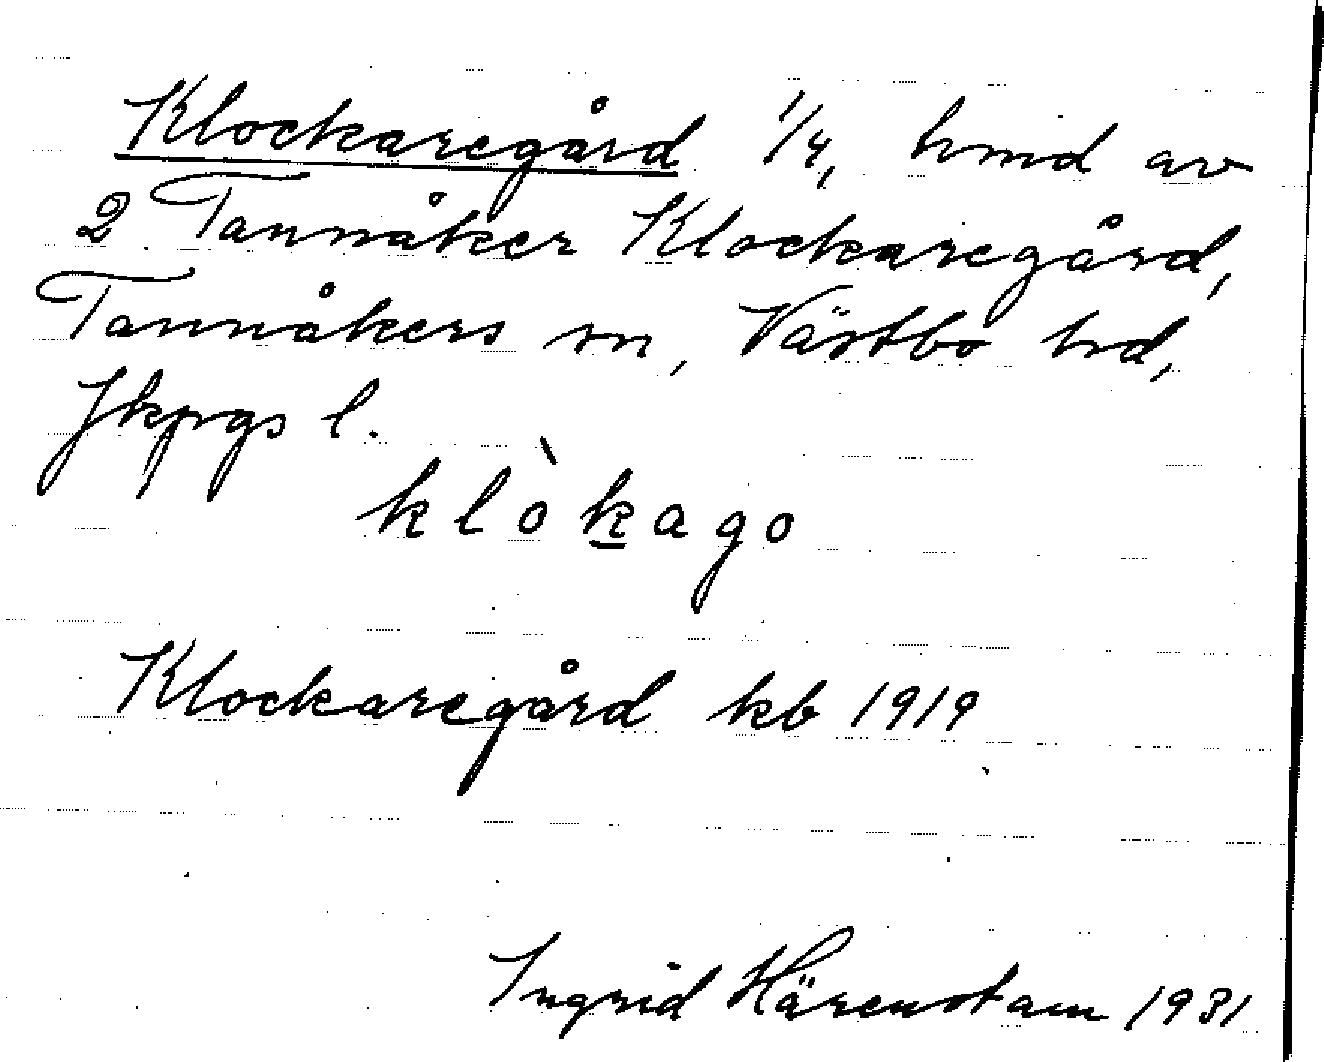 Klockaregård 1/4, hmd av
2 Tannåker Klockaregård,
Tannåkers sn, Västbo hd,
Jkpgs l.
klòkago
Klockaregård kb 1919
Ingrid Härenstam 1931